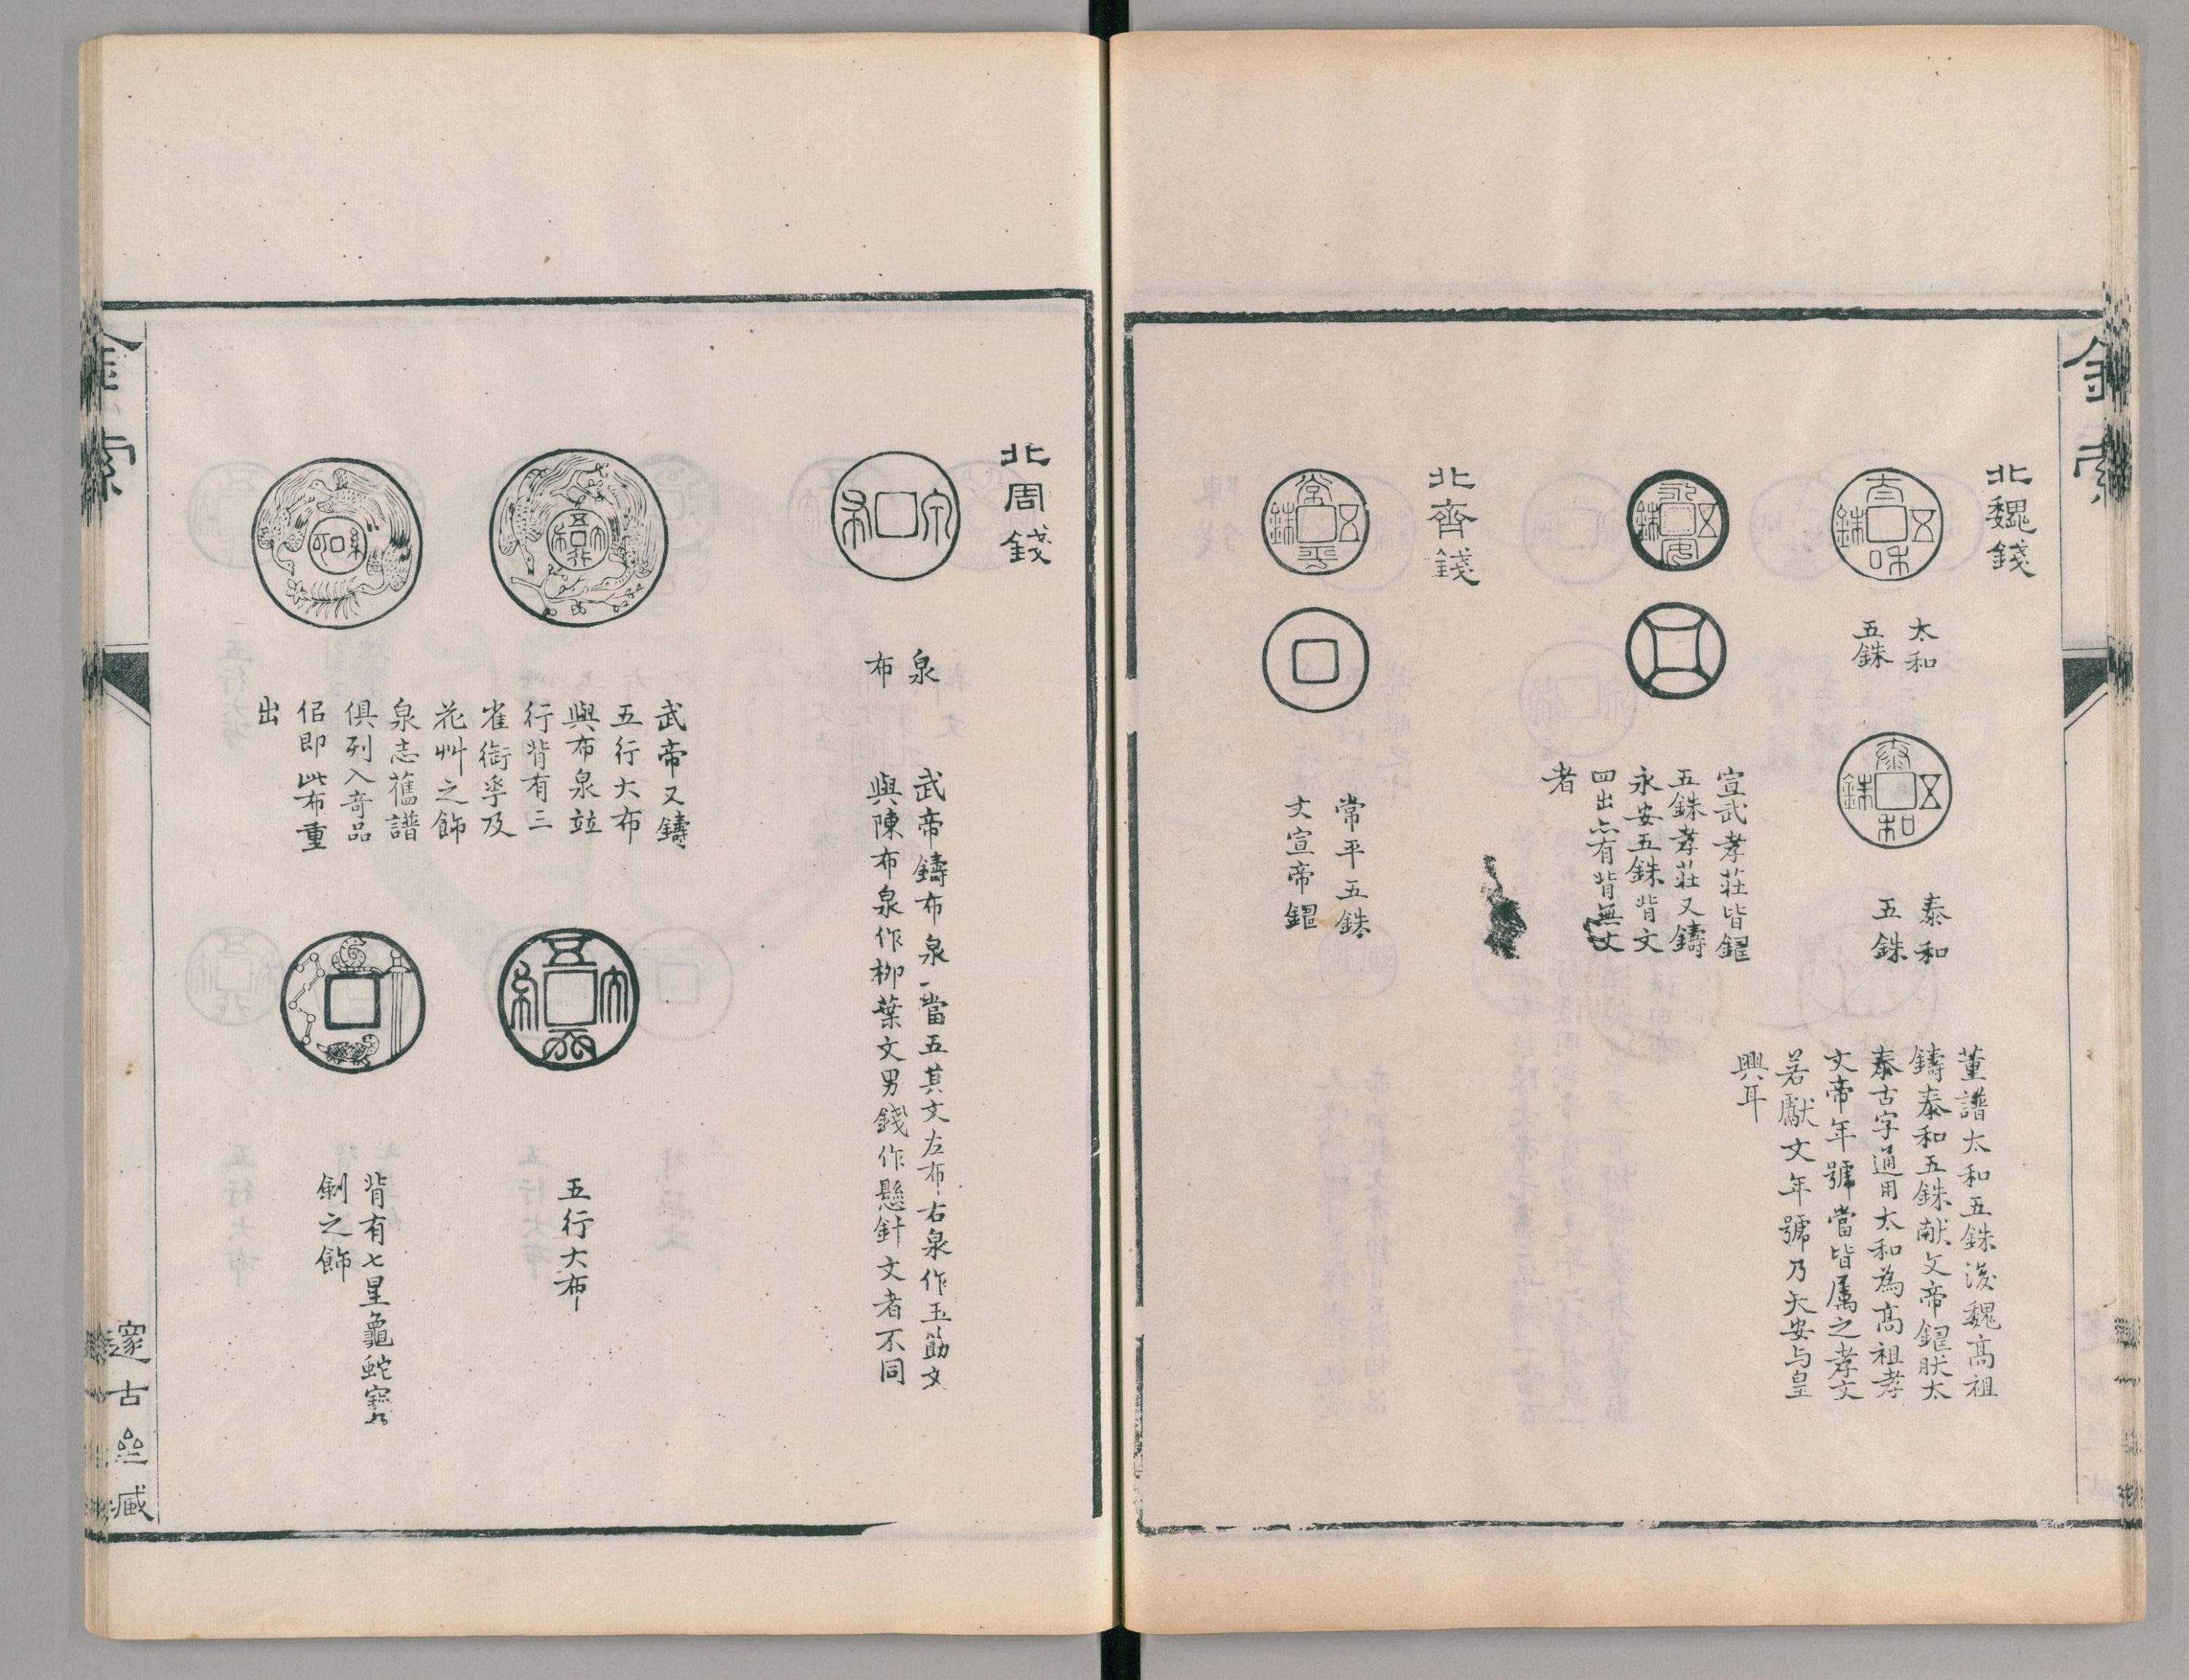 金索
北魏錢
太和
五銖
泰和
五銖
董譜太和五銖後魏高祖
鑄泰和五銖献文帝鑄肰太
泰古字通用太和為高祖孝
文帝年號當皆属之孝文
若獻文年號乃天安与皇
興耳
宣武孝莊皆鑄
五銖孝莊又鑄
永安五銖背文
四出亦有背無文
者
北齊錢
常平五銖
文宣帝鑄
北周錢
泉
布
武帝鑄布泉一當五其文左布右泉作玉筯文
與陳布泉作柳葉文男錢作懸針文者不同
武帝又鑄
五行大布
與布泉竝
行背有三
雀銜孚及
花艸之飾
泉志舊譜
俱列入奇品
佀即此布重
出
五行大布
背有七星龜蛇寶
劍之飾
金索
邃古亝臧